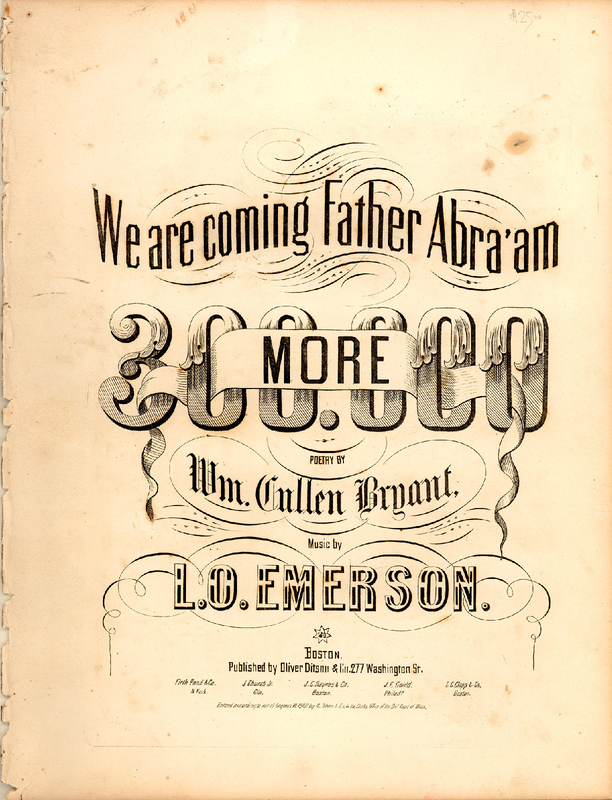 We are coming Father Abra'am
300.000
MORE
POETRY BY
Wm. Cullen Bryant.
Music by
L.O. EMERSON.
BOSTON.
Published by Oliver Ditson & Co. 277 Washington St.
Firth Pond & Co. J. Church Jr. J. C. Haynes & Co. J. E. Gould. C. C. Clapp & Co.
N. York. Cin. Boston. Philada. Boston.
Entered according to act of Congress AD 1862 by O. Ditson & Co. in the Clerks Office of the Dist. Court of Mass.